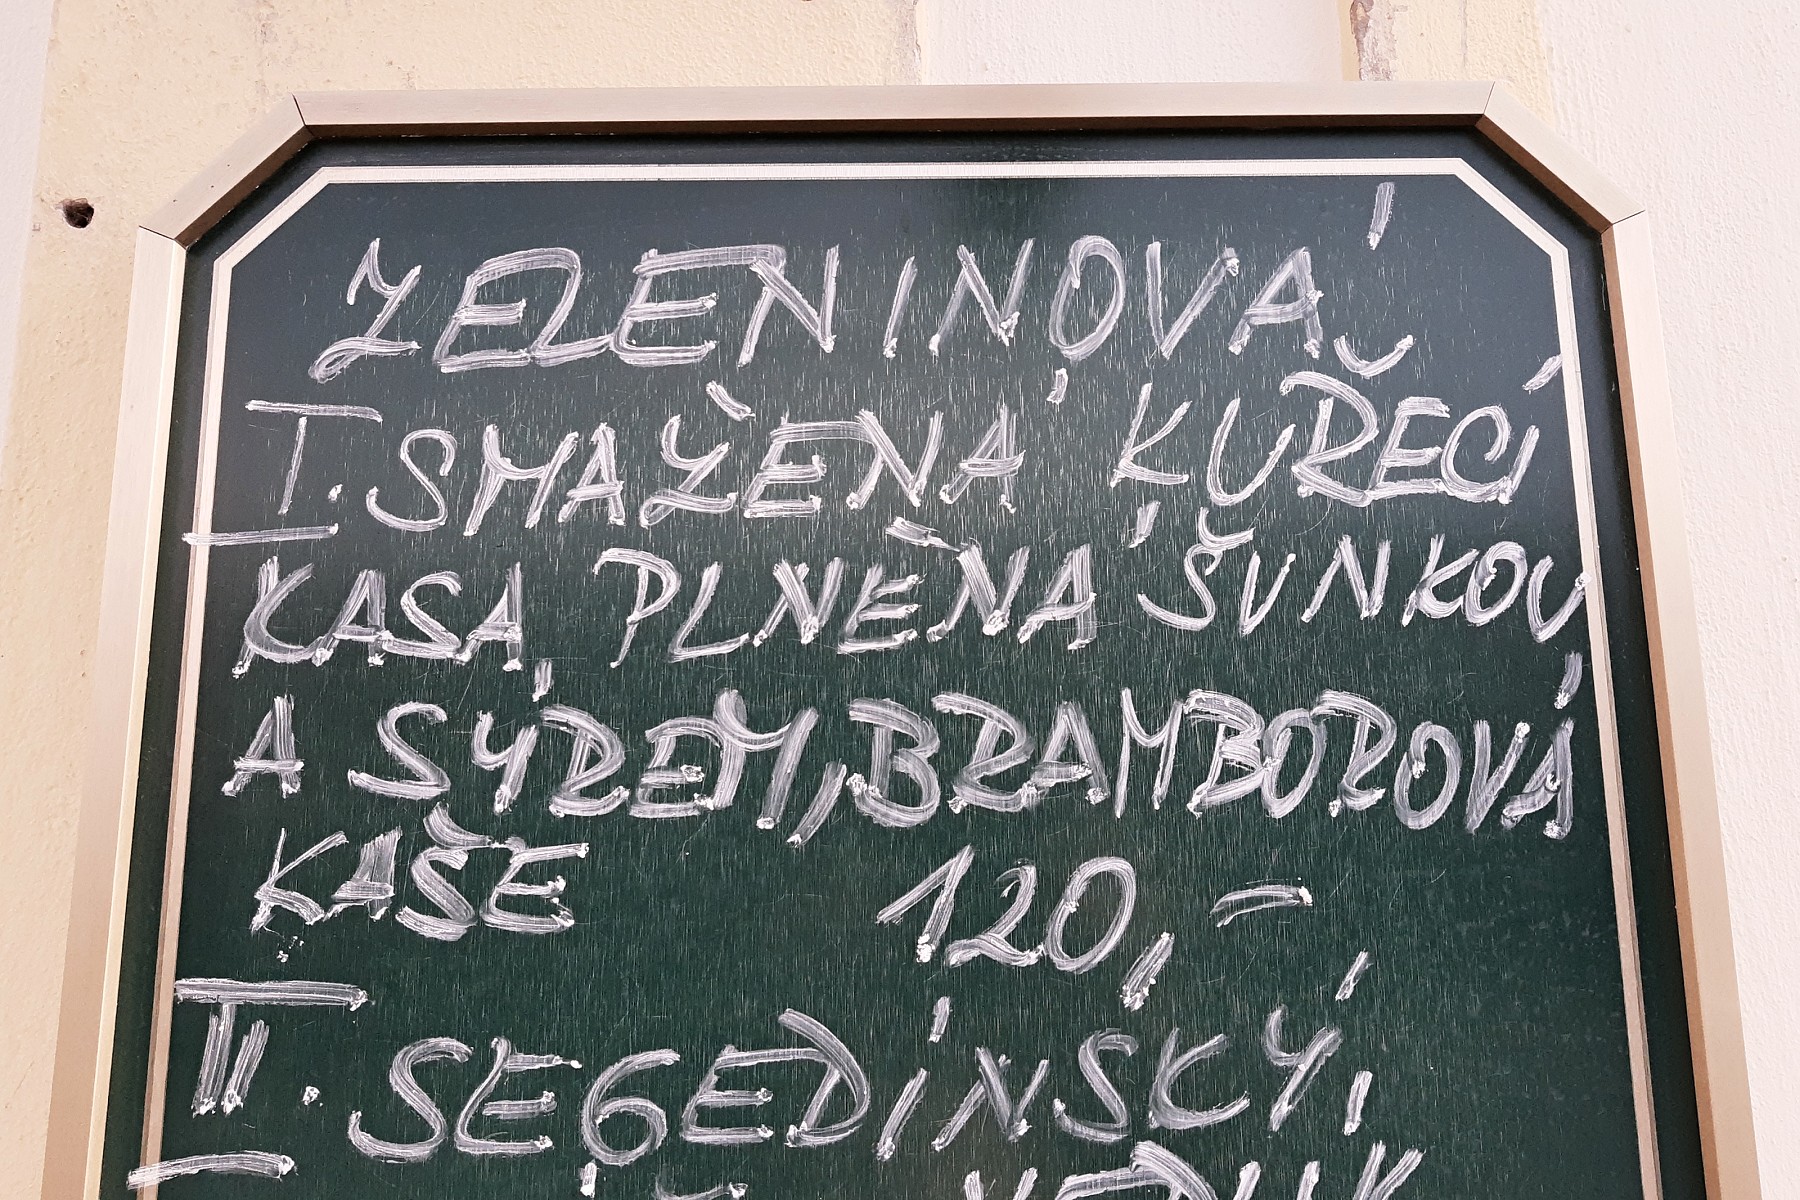 ZELENINOVÁ
I. SMAŽENÁ KUŘECÍ
KASA PLNĚNÁ ŠUNKOU
A SÝREM, BRAMBOROVÁ
KAŠE 120,-
II. SEGEDÍNSKÝ